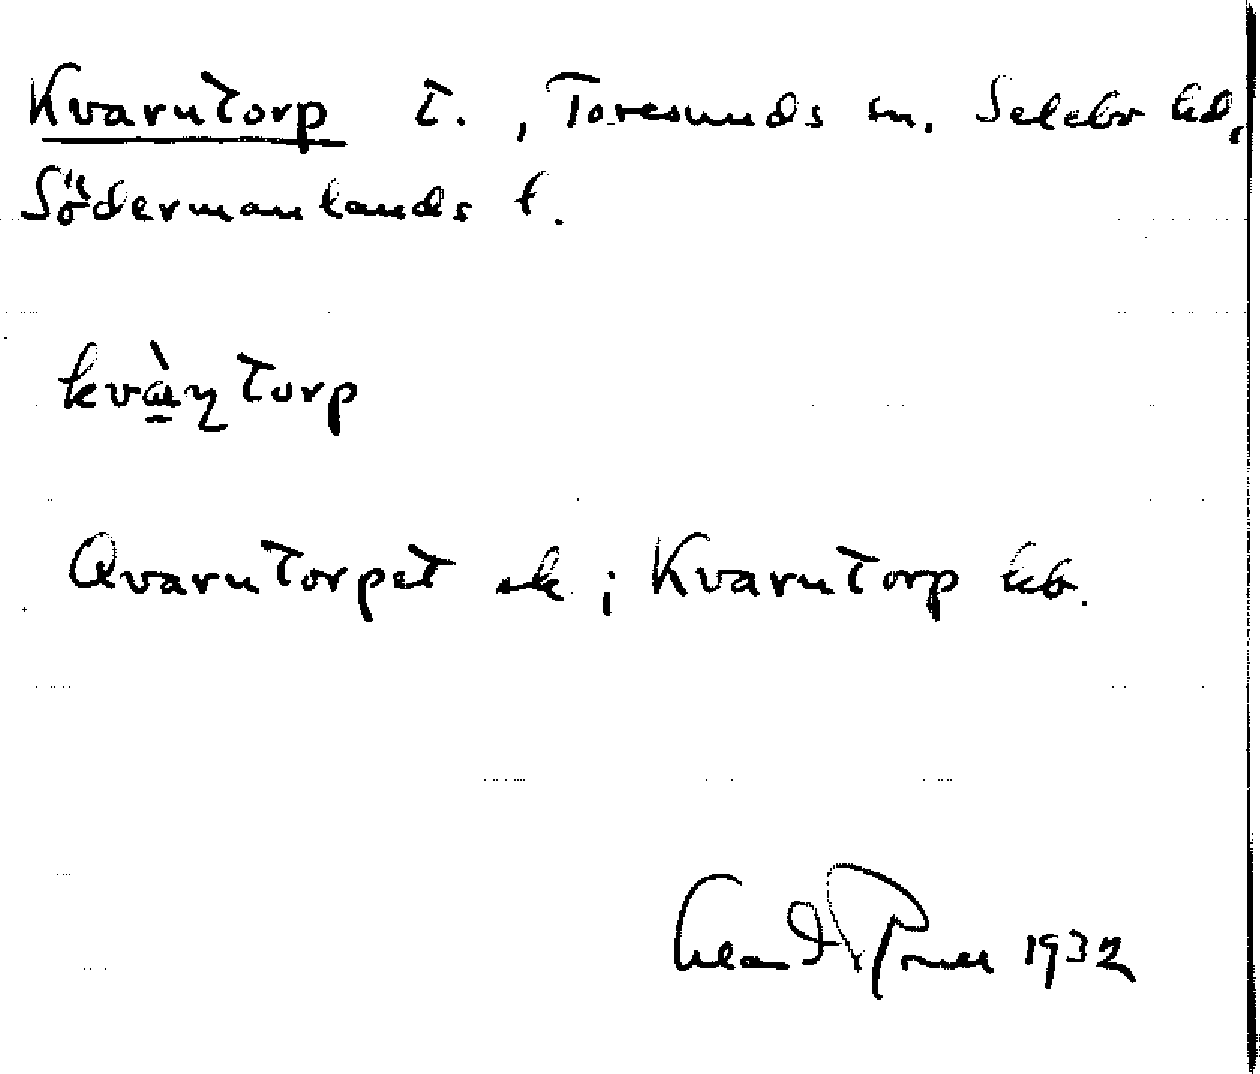 Kvarntorp t., Toresunds sn. Selebo hd,
Södermanlands l.
kvàṇtorp
Qvarntorpet ek; Kvarntorp kb.
1932